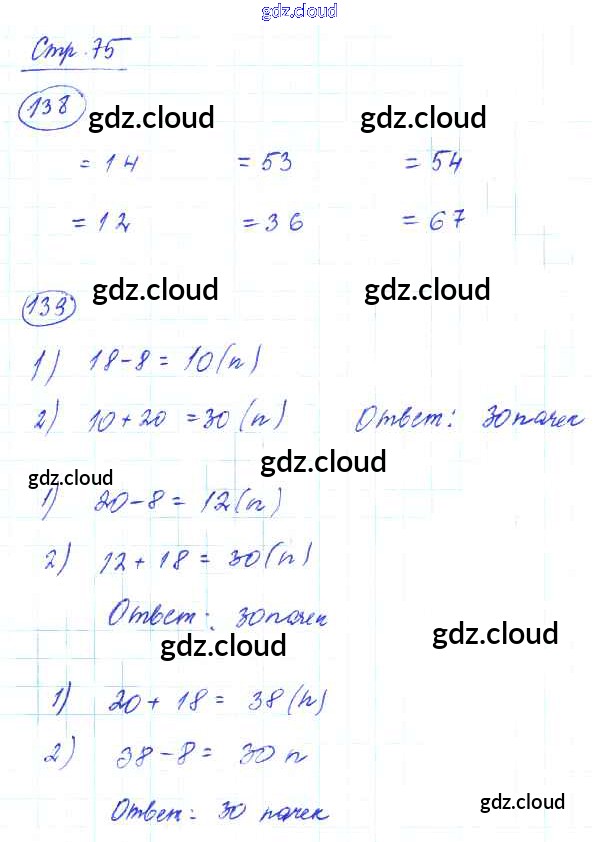 gdz.cloud
Стр. 75
138 gdz.cloud gdz.cloud
= 14 = 53 = 54
= 12 = 36 = 67
139 gdz.cloud gdz.cloud
1) 18 - 8 = 10 (п)
2) 10 + 20 = 30 (п) Ответ: 30 пачек
gdz.cloud
gdz.cloud
1) 20 - 8 = 12 (п)
2) 12 + 18 = 30 (п)
Ответ: 30 пачек
gdz.cloud gdz.cloud
1) 20 + 18 = 38 (п)
2) 38 - 8 = 30 п
Ответ: 30 пачек
gdz.cloud